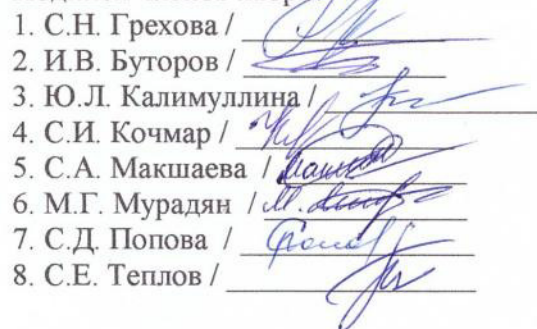 1. С.Н. Грехова /
2. И.В. Буторов /
3. Ю.Л. Калимуллина /
4. С.И. Кочмар /
5. С.А. Макшаева /
6. М.Г. Мурадян /
7. С.Д. Попова /
8. С.Е. Теплов /